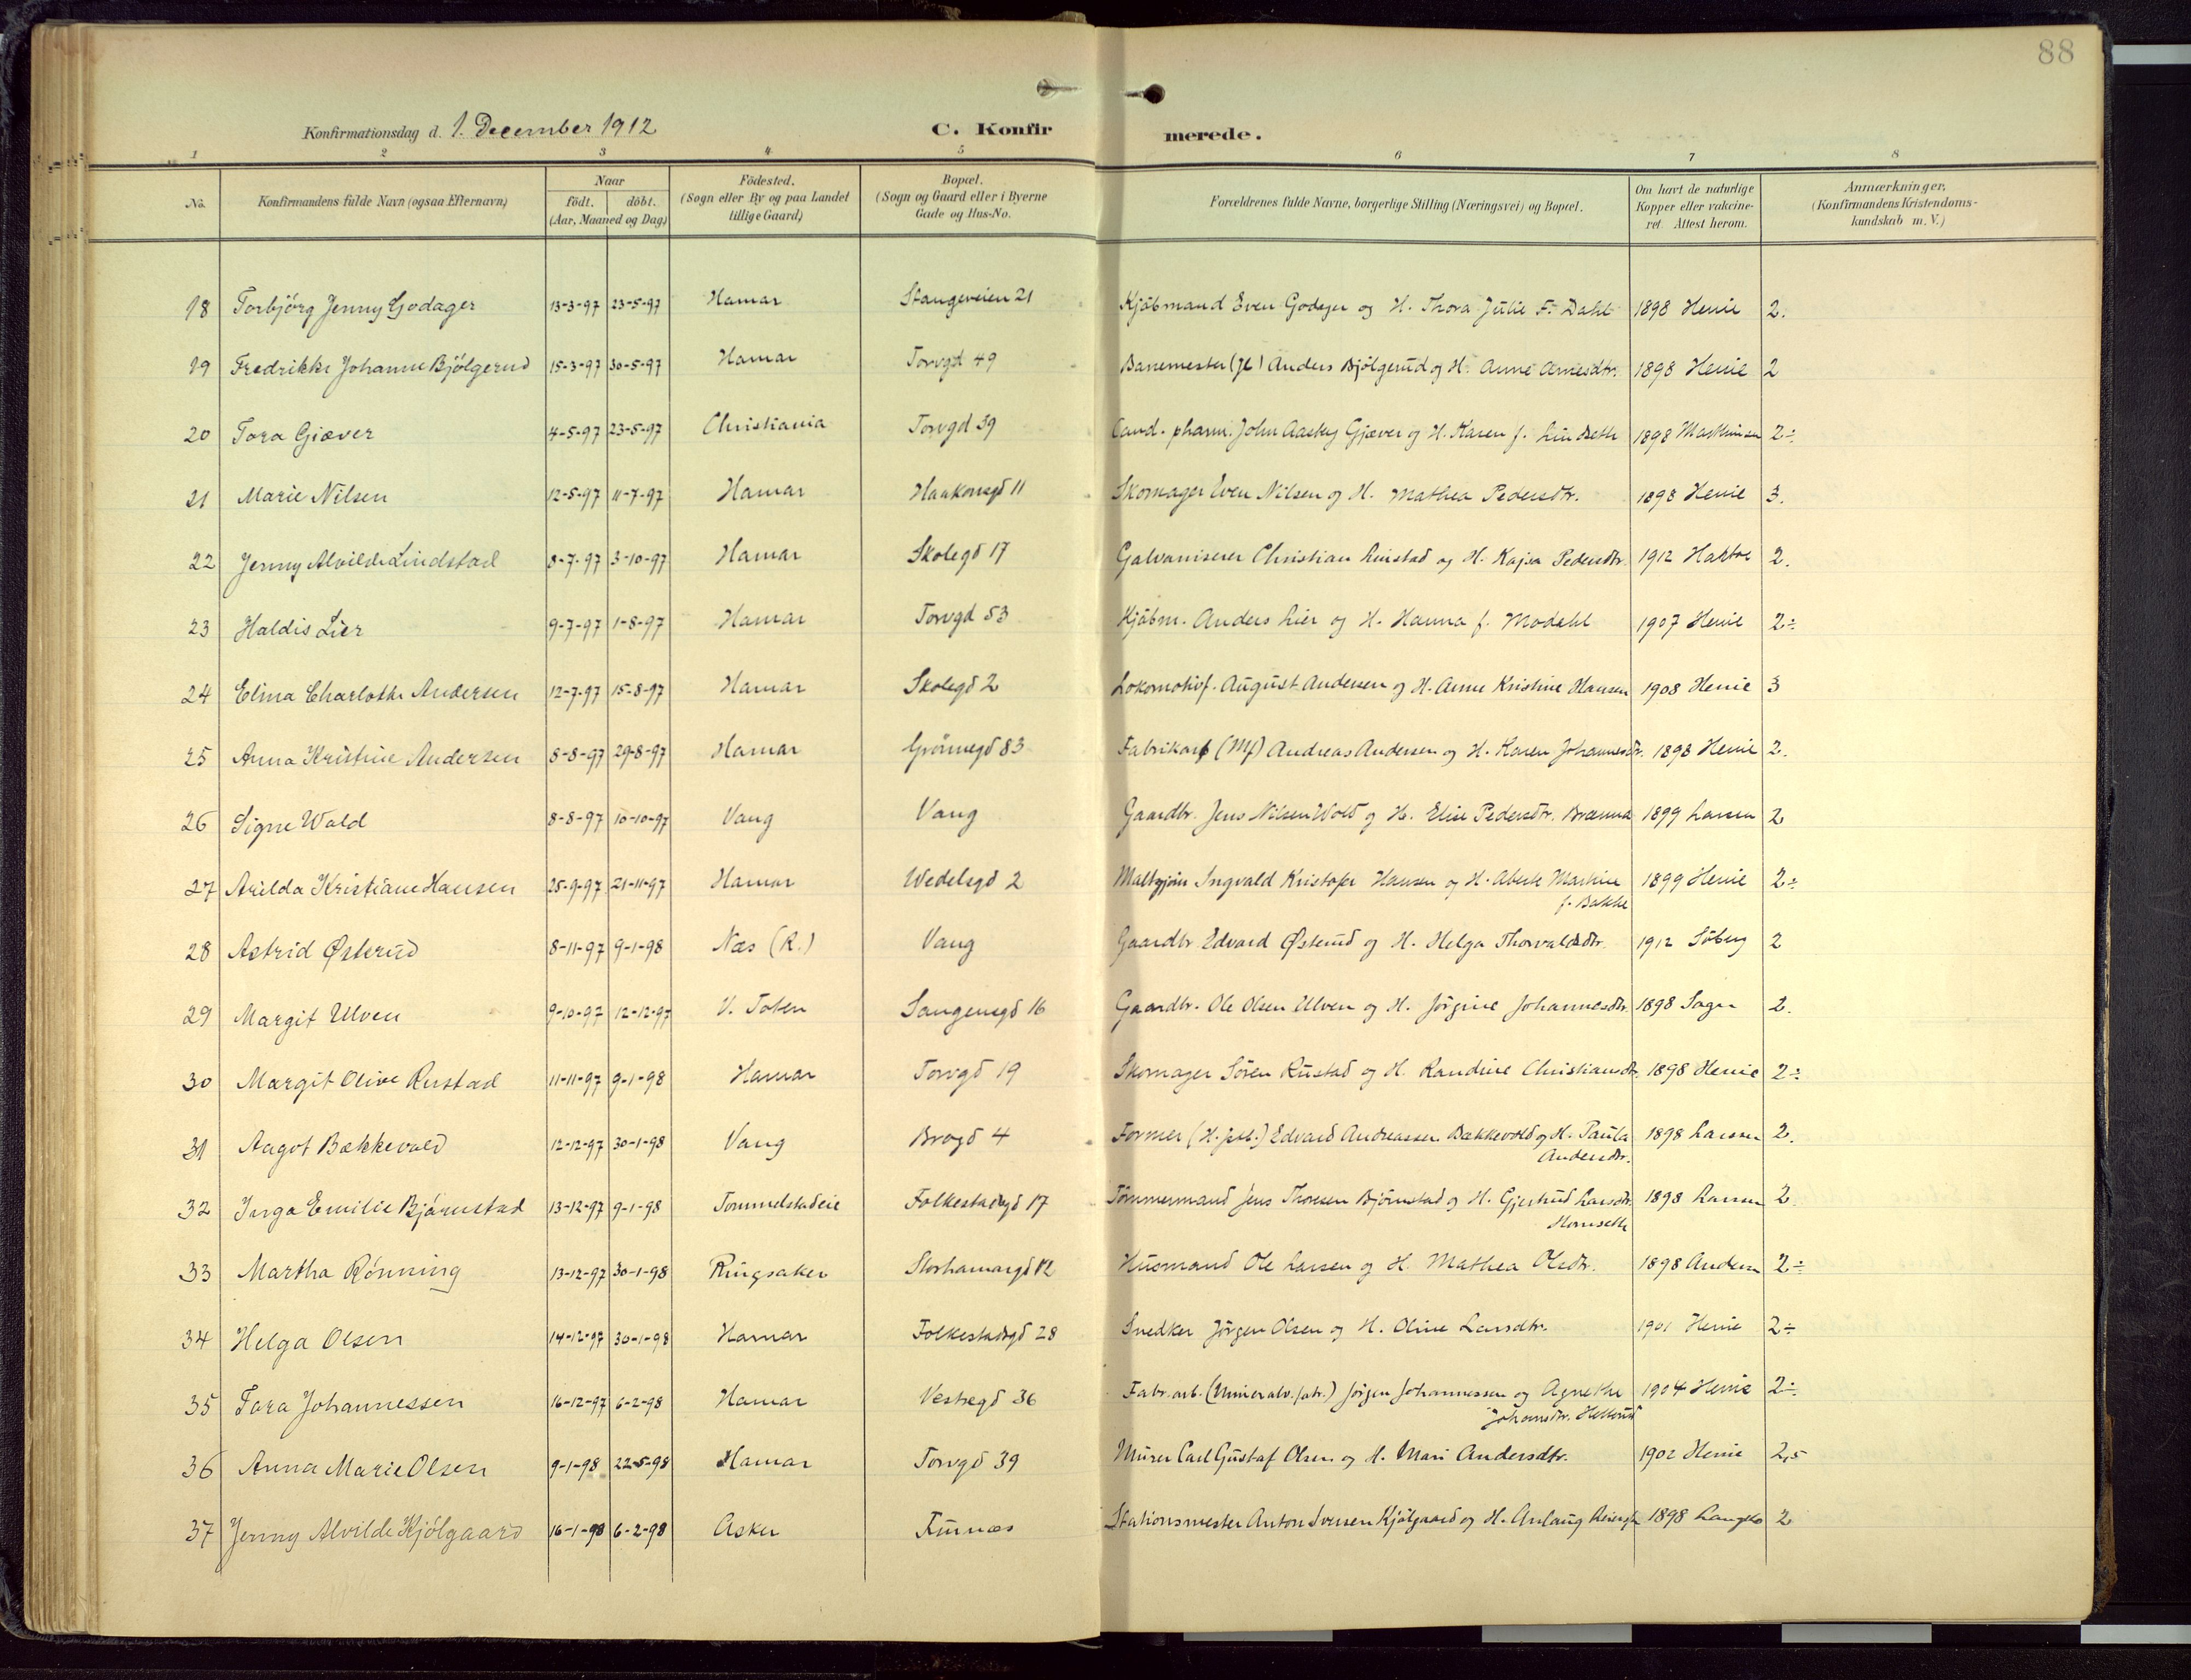 88
Konfirmationsdag d. 1. December 1912 C. Konfir merede.
1 2 3 4 5 6 7 8
No. Konfirmandens fulde Navn (ogsaa Efternavn) Naar födt. döbt. (Aar, Maaned og Dag) Födested. (Sogn eller By og paa Landet tillige Gaard) Bopæl. (Sogn og Gaard eller i Byerne Gade og Hus-No. Forældrenes fulde Navne, borgerlige Stilling (Næringsvei) og Bopæl. Om havt de naturlige Kopper eller vakcineret. Attest herom. Anmærkninger, (Konfirmandens Kristendomskundskab m. V.)
18 Torbjörg Jenny Godager 13-3-97 23-5-97 Hamar Stangeveien 21 Kjöbmand Even Godager og H. Thora Julie F. Dahl 1898 Henie 2.
19 Fredrikke Johanne Bjölgerud 15-3-97 30-5-97 Hamar Torvgd 49 Banemester Anders Bjölgerud og H. Anne Arnesdtr. 1898 Henie 2
20 Tora Giæver 4-5-97 23-5-97 Christiania Torvgd 39 Cand. pharm. John Gjæver og H. Karen f. Lindseth 1898 2÷
21 Marie Nilsen 12-5-97 11-7-97 Hamar Haakonsgd 11 Skomager Even Nilsen og H. Mathea Pedersdtr. 1898 Henie 3.
22 Jenny Alvilde Lindstad 8-7-97 3-10-97 Hamar Skolegd 17 Galvaniserer Christian Linstad og H. Kajsa Pedersdtr. 1912 2.
23 Haldis Lier 9-7-97 1-8-97 Hamar Torvgd 53 Kjöbm. Anders Lier og H. Hanna f. Modahl 1907 Henie 2÷
24 Elina Charlotte Andersen 12-7-97 15-8-97 Hamar Skolegd 2 Lokomotivf. August Andersen og H. Anne Kristine Hansen 1908 Henie 3
25 Anna Kristine Andersen 8-8-97 29-8-97 Hamar Grönnegd 83 Fabrikarb (Mf) Andreas Andersen og H. Karen Johannesdtr. 1898 Henie 2.
26 Signe Wold 8-8-97 10-10-97 Vang Vang Gaardbr. Jens Nilsen Wold og H. Elise Pedersdtr. 1899 Larsen 2
27 Arilda Kristiane Hansen 25-9-97 21-11-97 Hamar Wedelsgd 2 Ingvald Kristofer Hansen og H. Martine 1899 Henie 2÷
f. Bakke
28 Astrid Østerud 8-11-97 9-1-98 Næs (R.) Vang Gaardbr Edvard Østerud og H. Helga Thorvaldsdtr. 1912 Söberg 2
29 Margit Ulven 9-10-97 12-12-97 V. Toten Sangensgd 16 Gaardbr. Ole Olsen Ulven og H. Jörgine Johannesdtr. 1898 2.
30 Margit Olive Rustad 11-11-97 9-1-98 Hamar Torvgd 19 Skomager Sören Rustad og H. Randine Christiansdtr. 1898 Henie 2÷
31 Aagot Bækkevold 12-12-97 30-1-98 Vang Brogd 4 Former Edvard Andreassen Bækkevold og H. Paula 1898 Larsen 2.
Andersdtr.
32 Inga Emilie Bjørnstad 13-12-97 9-1-98 Tommelstadeie Folkestadsgd 17 Tömmermand Jens Thorsen Björnstad og H. Gjertrud Larsdtr. 1898 Larsen 2.
33 Martha Rønning 13-12-97 30-1-98 Ringsaker Storhamargd 12 Husmand Ole Larsen og H. Mathea Olsdtr. 1898 Andersen 2÷
34 Helga Olsen 14-12-97 30-1-98 Hamar Folkestadsgd 28 Snedker Jörgen Olsen og H. Oline Larsdtr. 1901 Henie 2÷
35 Tora Johannessen 16-12-97 6-2-98 Hamar Vestregd 36 Fabr. arb. (Mineralv. fabr.) Jörgen Johannessen og Agnethe 1904 Henie 2÷
Johansdtr. Hellerud
36 Anna Marie Olsen 9-1-98 22-5-98 Hamar Torvgd 39 Murer Carl Gustaf Olsen og H. Mari Andersdtr. 1902 Henie 2,5
37 Jenny Alvilde Kjölgaard 16-1-98 6-2-98 Asker Furnæs Stationsmester Anton Iversen Kjölgaard og H. Anlaug 1898 2